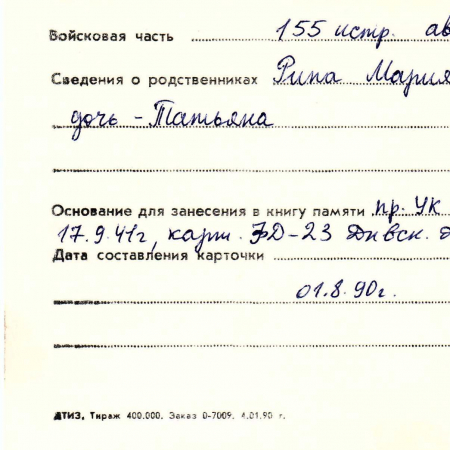 Войсковая часть 155 истр. ав
Сведения о родственниках Рипа Мария
дочь - Татьяна
Основание для занесения в книгу памяти пр. УК
17.9.41г, карт. ЯД-23
Дата составления карточки
01.8.90г.
ДТИЗ. Тираж 400.000. Заказ 0-7009. 4.01.90 г.